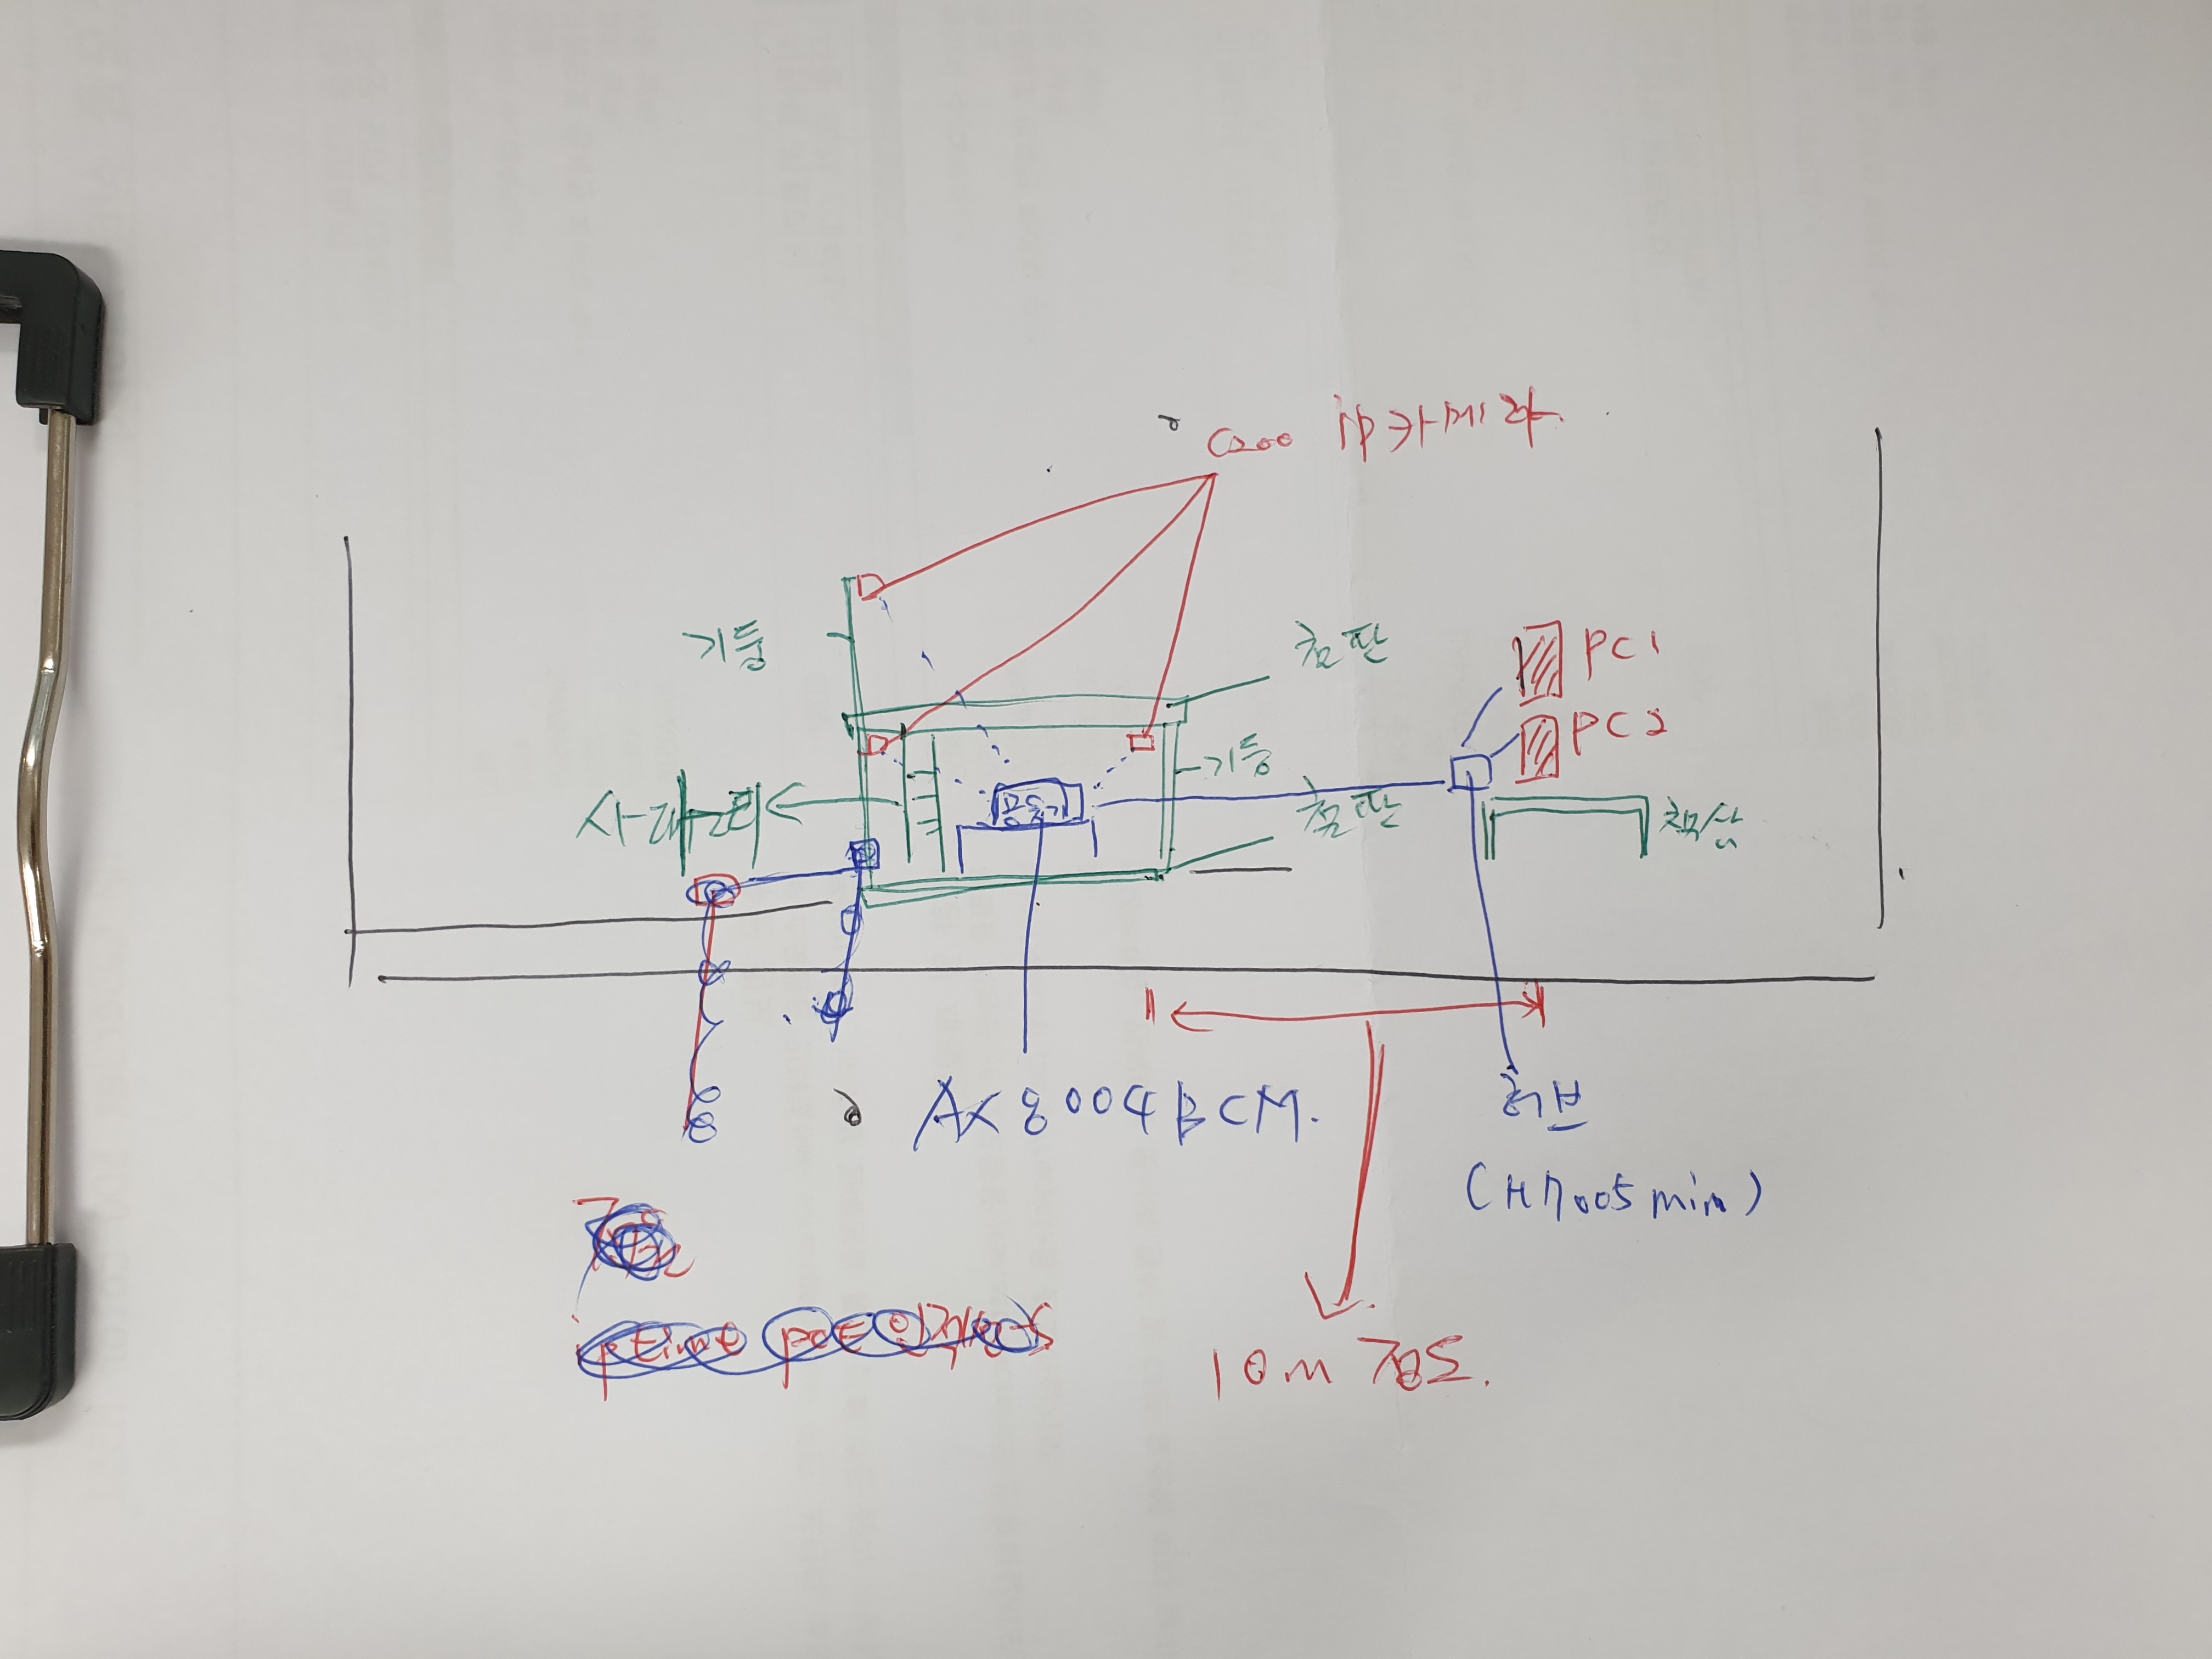 C200 IP카메라
기둥
철판
PC1
PC2
기둥
공유기
사다리
철판
책상
AX8004BCM.
허브
(H7005mini)
10m 정도.